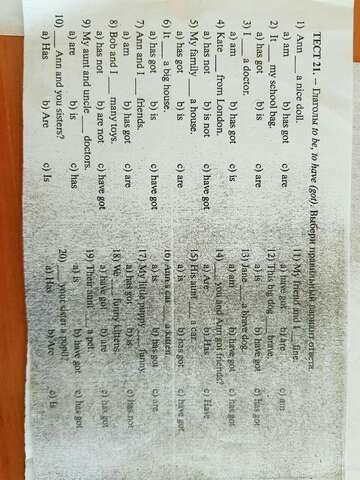 ТЕСТ 21. – Глаголы to be, to have (got). Выбери правильный вариант ответа.
1) Ann ___ a nice doll.
a) am b) has got c) are
2) It ___ my school bag.
a) has got b) is c) are
3) I ___ a doctor.
a) am b) has got c) is
4) Kate ___ from London.
a) has not b) is not c) have got
5) My family ___ a house.
a) am b) has got c) are
6) It ___ a big house.
a) has got b) is c) have got
7) Ann and I ___ friends.
a) am b) has got c) are
8) Bob and I ___ many toys.
a) has not b) are not c) have got
9) My aunt and uncle ___ doctors.
a) are b) is c) has
10) ___ Ann and you sisters?
a) Has b) Are c) Is
11) My friend and I ___ fine.
a) have got b) are c) am
12) This big dog ___ brave.
a) is b) have got c) has got
13) Jane ___ a brave dog.
a) am b) have got c) has got
14) ___ you and Ann got friends?
a) Are b) Has c) Have
15) His aunt ___ a car.
a) is b) has got c) have got
16) Ann's cat ___ a kitten.
a) is b) has got c) are
17) My little puppy ___ funny.
a) has got b) is c) has not
18) We ___ funny kittens.
a) have got b) are c) has got
19) Their aunt ___ a pet.
a) is b) have got c) has got
20) ___ your sister a pupil?
a) Has b) Are c) Is